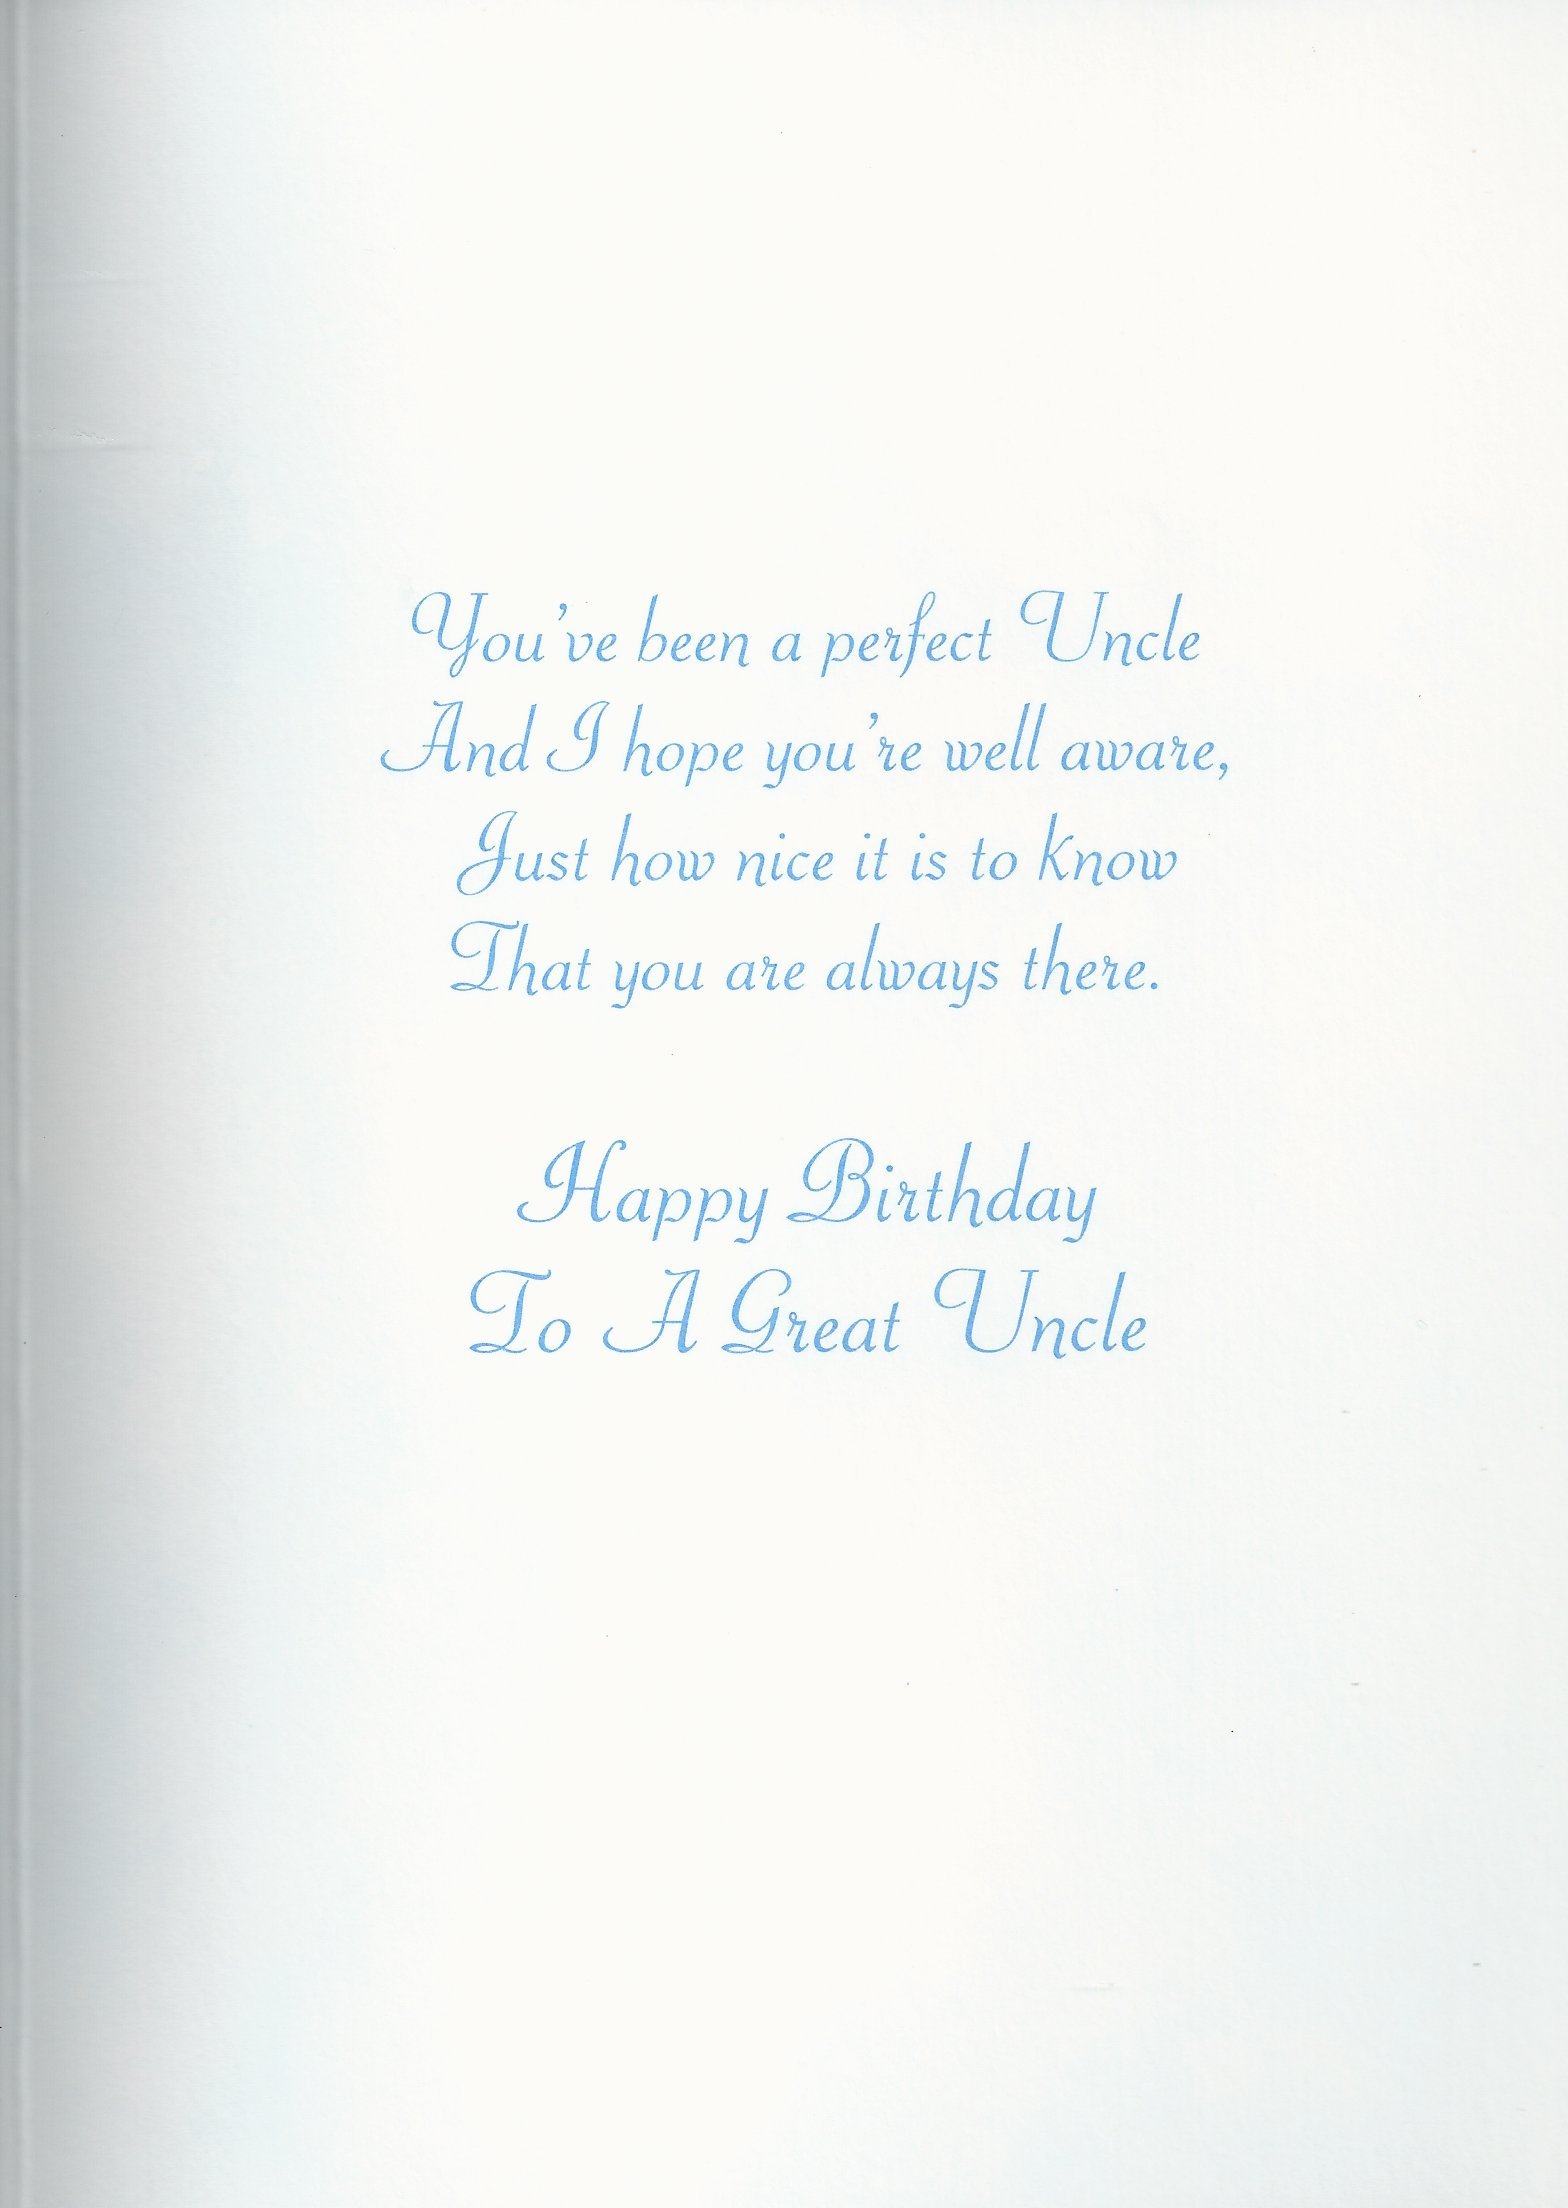 You've been a perfect Uncle
And I hope you're well aware,
Just how nice it is to know
That you are always there.
Happy Birthday
To A Great Uncle